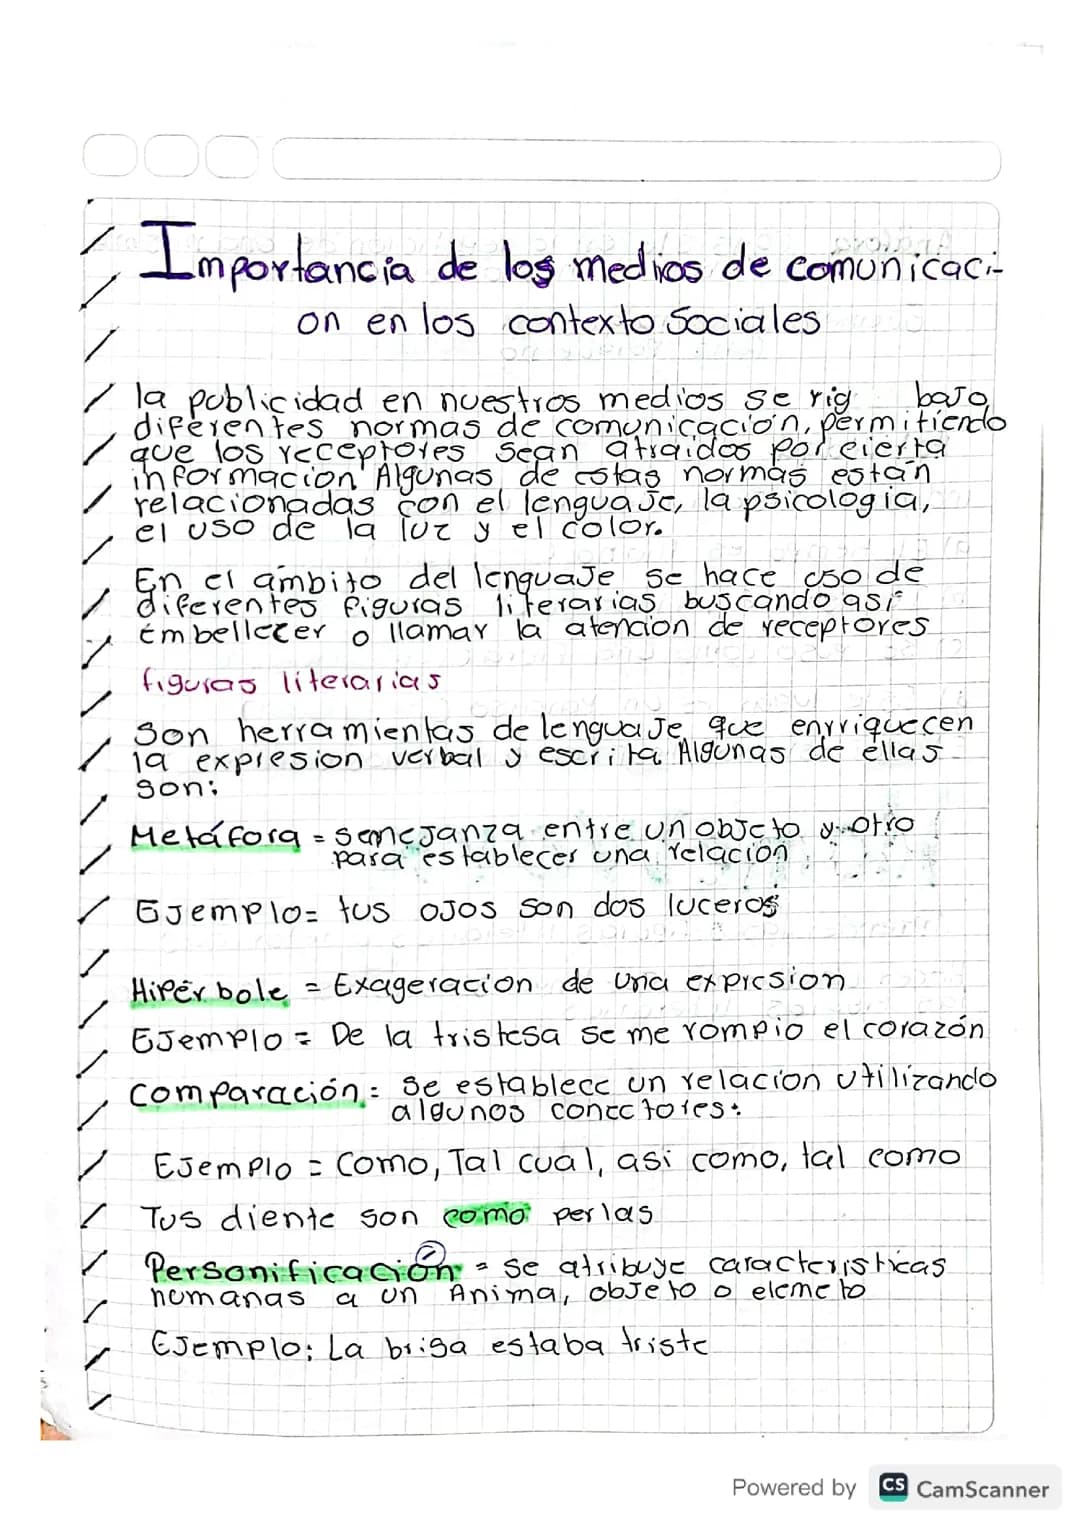 Importancia de los medios de comunicaci-
on en los contexto sociales
la publicidad en nuestros medios se rig bajo
diferentes normas de comunicación, permitiendo
que los receptores sean atraidos por cierta
informacion Algunas de estas normas están
relacionadas con el lenguaje, la psicologia,
el uso de la luz y el color.
En el ambito del lenguaje se hace uso de
diferentes figuras literarias buscando asi
Embellecer o llamar la atencion de receptores
figuras literarias
Son herramientas de lenguaje que enrriquecen
la expresion verbal y escrita Algunas de ellas
son:
Metáfora = semejanza entre un objeto y otro
para establecer una relacion
Ejemplo= tus ojos son dos luceros
Hipérbole = Exageracion de una expresion
Ejemplo = De la tristesa se me rompio el corazón
Comparación = se establece un relacion utilizando
algunos conectores:
Ejemplo = Como, Tal cual, asi como, tal como
Tus diente son como perlas
Personificación = se atribuye caracteristicas
humanas a un Anima, objeto o elemeto
Ejemplo: La briga estaba triste
Powered by CS CamScanner